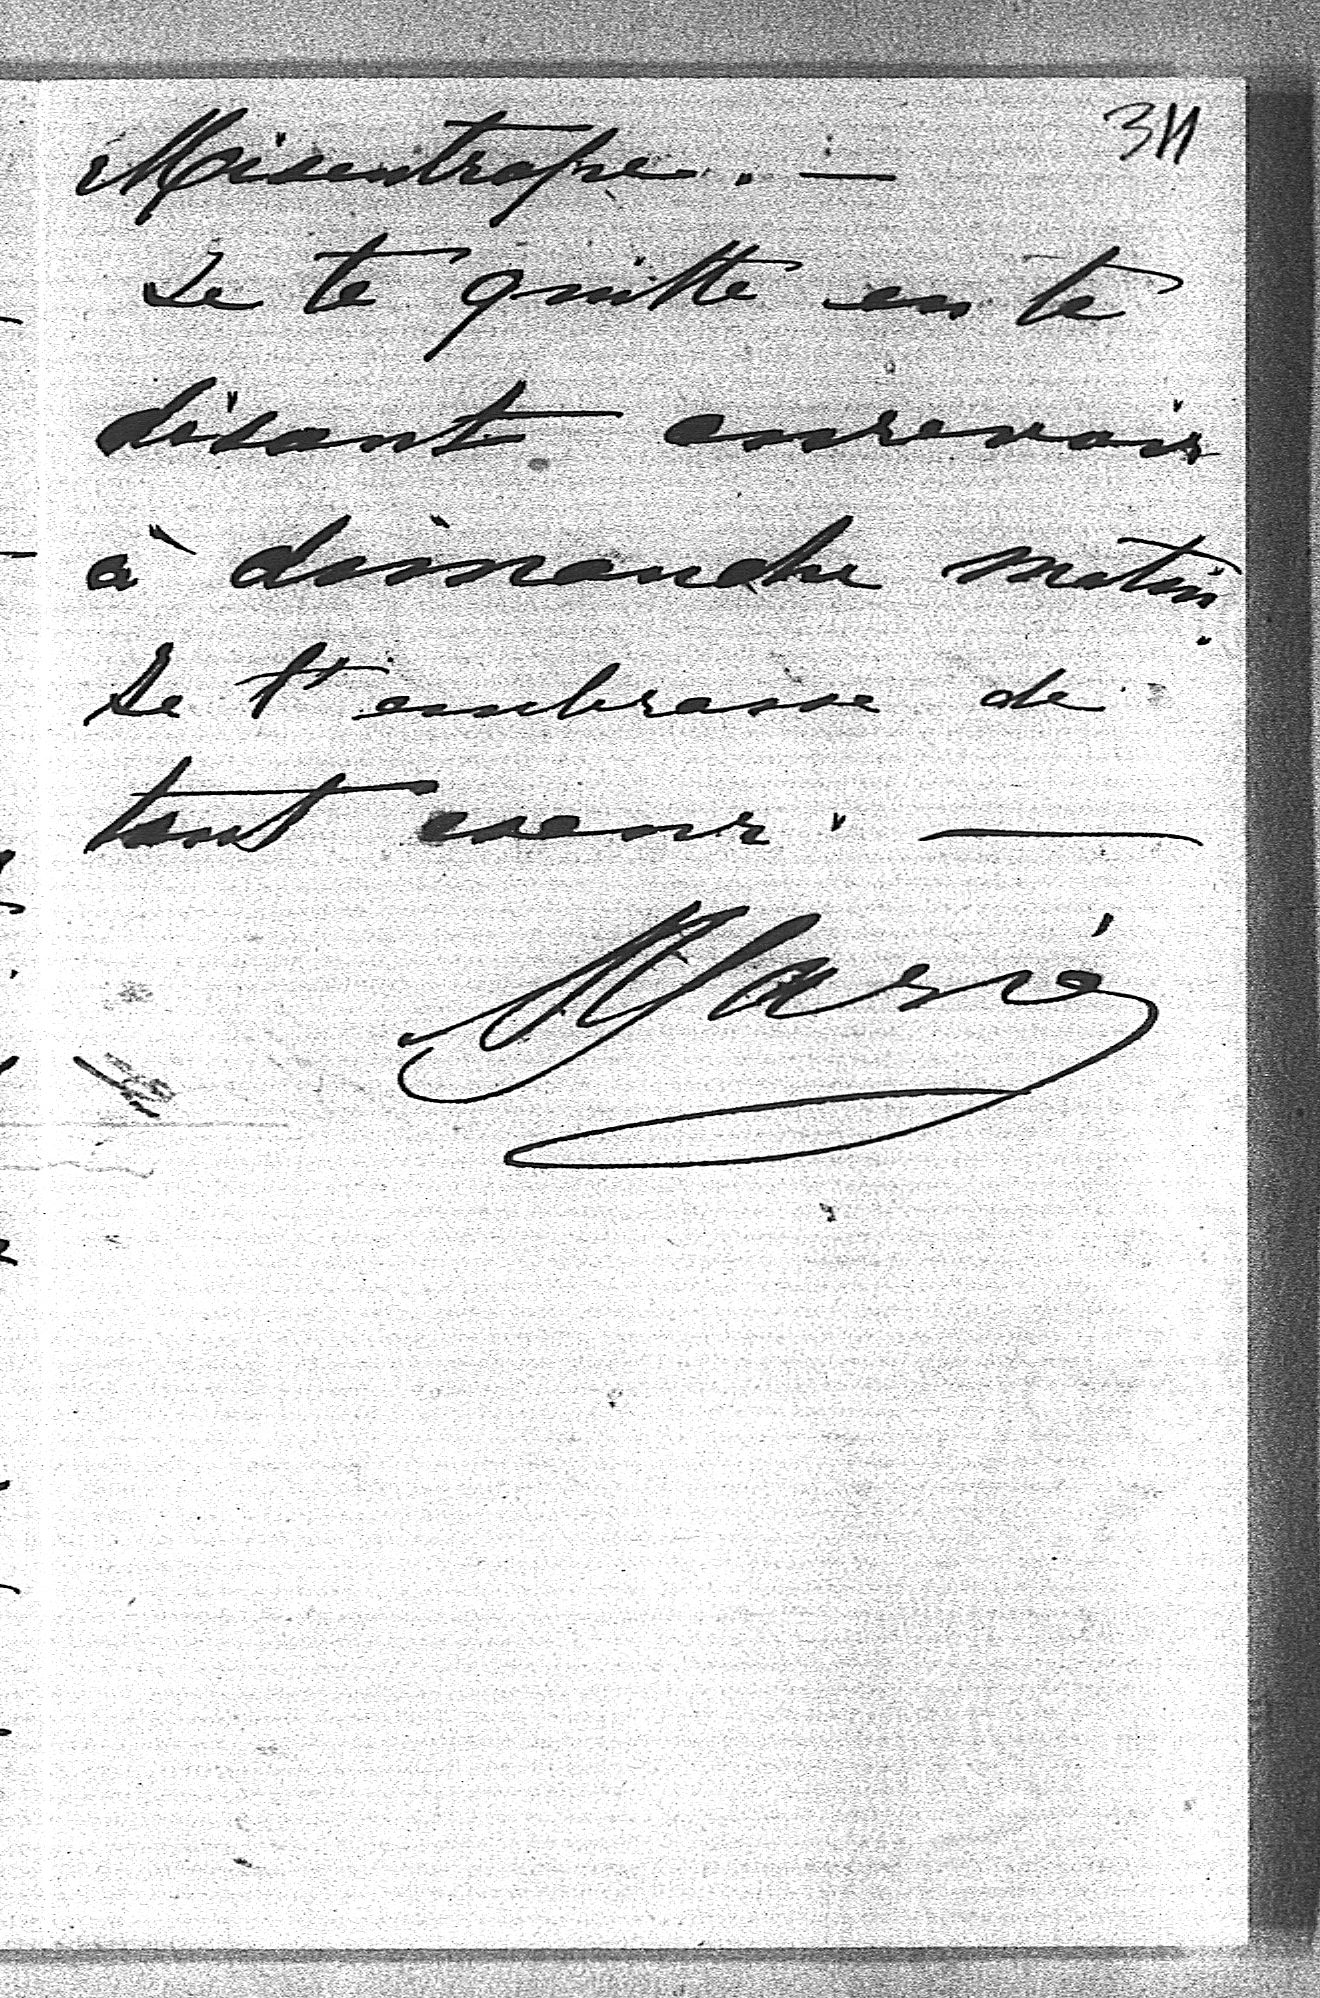 311
Misentrope. —
Je te quitte en te
disant aurevoir
à dimanche matin.
Je t'embrasse de
tout coeur. —
Marie